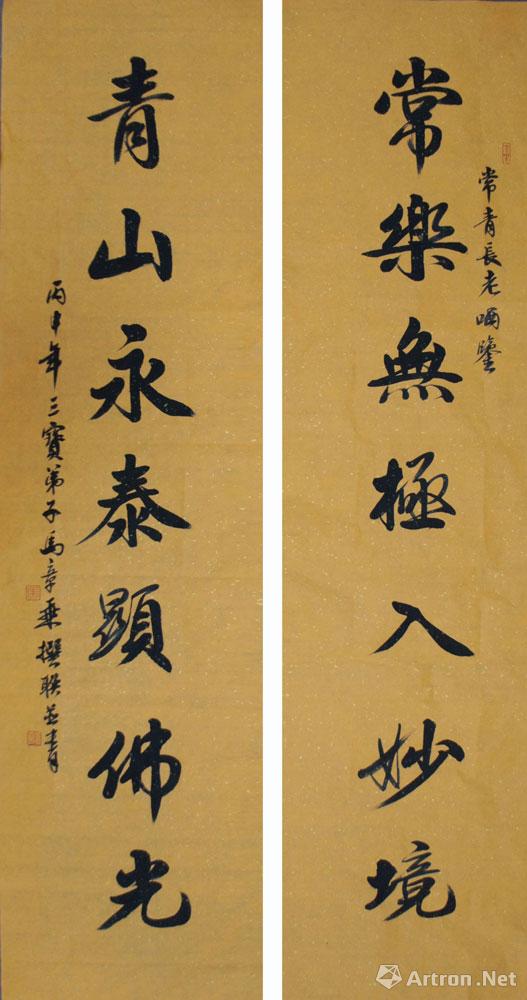 常樂無極入妙境
常青長老哂鑒
青山永泰顯佛光
丙申年三寶弟子馬章乘撰聯並書
Artron.Net